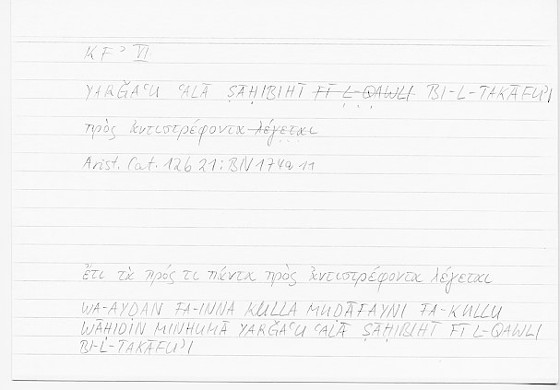 KFʾ VI
YARǦAʿU ʿALĀ ṢĀḤIBIHĪ FĪ L-QAWLI BI-L-TAKĀFUʾI
πρὸς ἀντιστρέφοντα λέγεται
Arist. Cat. 12b 21; BN 174a 11
ἔτι τὰ πρός τι πάντα πρὸς ἀντιστρέφοντα λέγεται
WA-AYḌAN FA-INNA KULLA MUḌĀFAYNI FA-KULLU
WĀḤIDIN MINHUMĀ YARǦAʿU ʿALĀ ṢĀḤIBIHĪ FĪ L-QAWLI
BI-L-TAKĀFUʾI